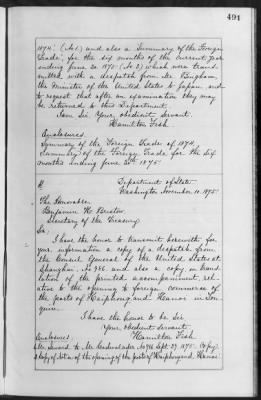 491
1874. (No 1.) and also a Summary of the Foreign
Trade, for the six months of the current year
ending June 30. 1875 (No 2) which were trans-
mitted with a despatch from Mr Bingham,
the Minister of the United States to Japan, and
to request that after an examination they may
be returned to this Department.
I am Sir Your obedient servant
Hamilton Fish
Enclosures.
Summary of the Foreign Trade of 1874,
(Summary) of the Foreign Trade for the six
months ending June 30th 1875
Department of State
Washington November 10. 1875
The Honorable
Benjamin H. Bristow
Secretary of the Treasury
Sir,
I have the honor to transmit herewith for
your information a copy of a despatch from
the Consul General of the United States at
Shanghai, No 946 and also a copy in trans
lation of the printed accompaniment rel-
ative to the opening to foreign commerce of
the ports of Haiphong and Hanoi in Ton
quin.
I have the honor to be Sir
Your obedient servant
Hamilton Fish
Enclosures
Mr Seward to Mr Cadwalader No 946 Sept. 27. 1875. (Copy)
Copy of Notice of the opening of the ports of Haiphong and Hanoi.